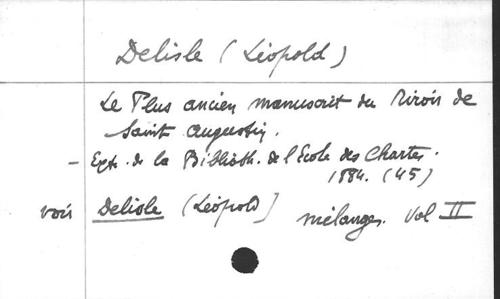 Delisle (Léopold)
Le Plus ancien manuscrit du Miroir de
Saint Augustin.
- Ext. de la Biblioth. de l'Ecole des Chartes.
1884. (45)
voir Delisle (Léopold) mélanges. Vol II